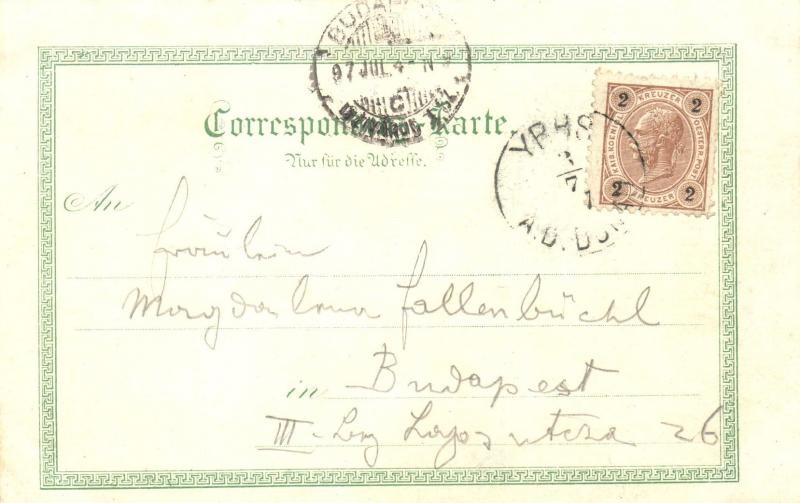 BUDAPEST
97 JUL 4 - N
C
Correspondenz-Karte
Nur für die Adresse.
2 KREUZER 2
KAIS. KOENIGL. OESTERR. POST
2 KREUZER 2
YBBS
A.D. DONAU
An
Fräulein
Magdalena Fallenbüchl
in Budapest
III. Lajos utcza 26